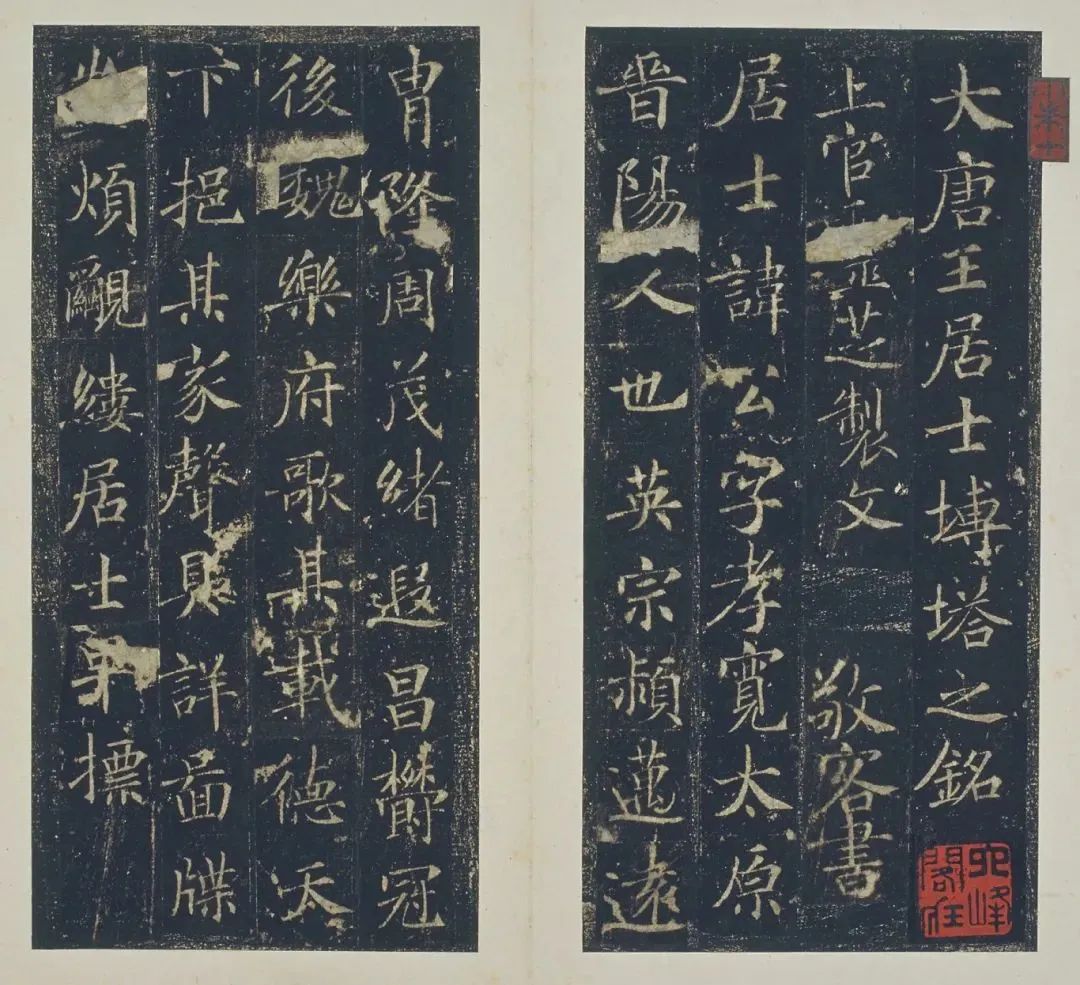 大唐王居士塼塔之銘
上官芝製文 敬客書
居士諱公字孝寬太原
晉陽人也英宗穎邁遠
冑隆周茂緒遐昌鬱冠
後魏樂府歌其載德天
下挹其家聲具詳圖牒
煩覼縷居士標